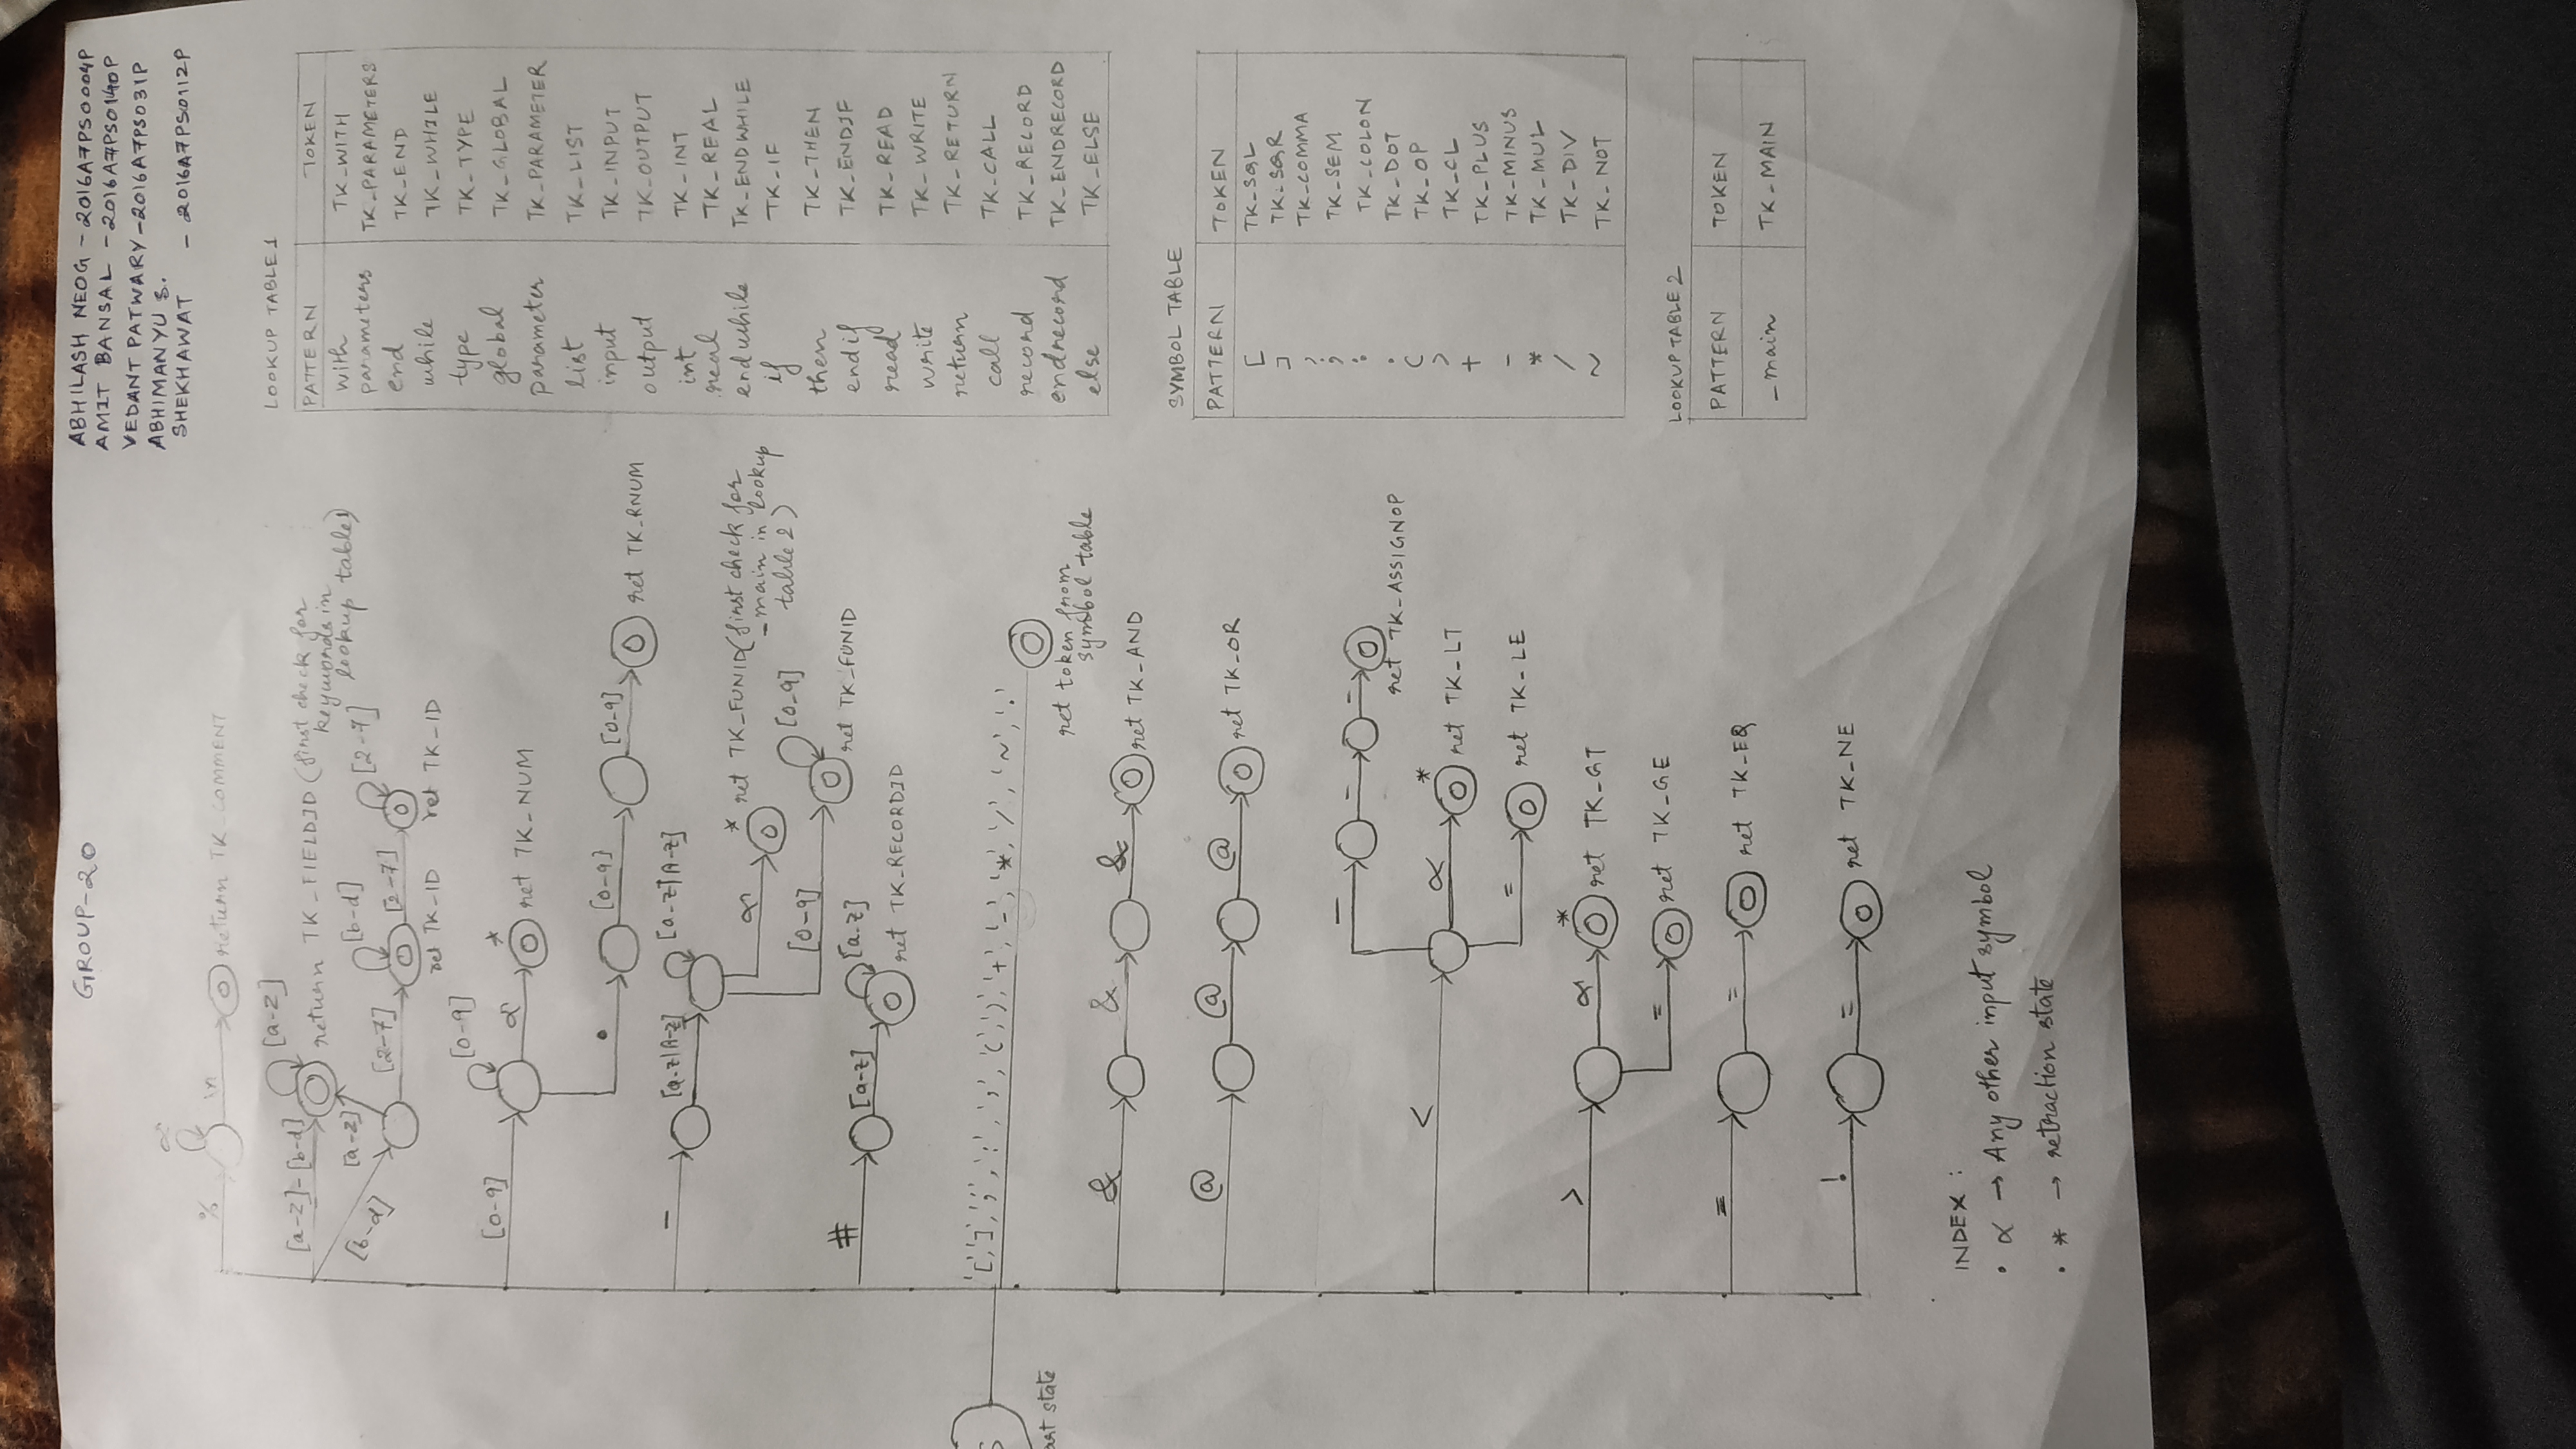 GROUP-20
ABHILASH NEOG - 2016A7PS0004P
AMIT BANSAL - 2016A7PS0140P
VEDANT PATWARY - 2016A7PS031P
ABHIMANYU S.
SHEKHAWAT - 2016A7PS0112P
% α \n return TK_COMMENT
[a-z]-[b-d] [a-z] return TK_FIELDID (first check for
keywords in
lookup table1)
[b-d] [a-z] [2-7] [b-d] [2-7] [2-7]
ret TK_ID ret TK_ID
[0-9] [0-9] α * ret TK_NUM
• [0-9] [0-9] ret TK_RNUM
- [a-z|A-z] [a-z|A-z]
α * ret TK_FUNID (first check for
_main in lookup
table 2)
[0-9] [0-9] ret TK_FUNID
# [a-z] [a-z] ret TK_RECORDID
S
art state
'[',']',';',':',',','(',')','+','-','*','/','~','.'
ret token from
symbol table
& & & ret TK_AND
@ @ @ ret TK_OR
- - - ret TK_ASSIGNOP
< α * ret TK_LT
= ret TK_LE
> α * ret TK_GT
= ret TK_GE
= = ret TK_EQ
! = ret TK_NE
INDEX :
• α → Any other input symbol
• * → retraction state
LOOKUP TABLE 1
PATTERN TOKEN
with TK_WITH
parameters TK_PARAMETERS
end TK_END
while TK_WHILE
type TK_TYPE
global TK_GLOBAL
parameter TK_PARAMETER
list TK_LIST
input TK_INPUT
output TK_OUTPUT
int TK_INT
real TK_REAL
endwhile TK_ENDWHILE
if TK_IF
then TK_THEN
endif TK_ENDIF
read TK_READ
write TK_WRITE
return TK_RETURN
call TK_CALL
record TK_RECORD
endrecord TK_ENDRECORD
else TK_ELSE
SYMBOL TABLE
PATTERN TOKEN
[ TK_SQL
] TK_SQR
, TK_COMMA
; TK_SEM
: TK_COLON
. TK_DOT
( TK_OP
) TK_CL
+ TK_PLUS
- TK_MINUS
* TK_MUL
/ TK_DIV
~ TK_NOT
LOOKUP TABLE 2
PATTERN TOKEN
_main TK_MAIN